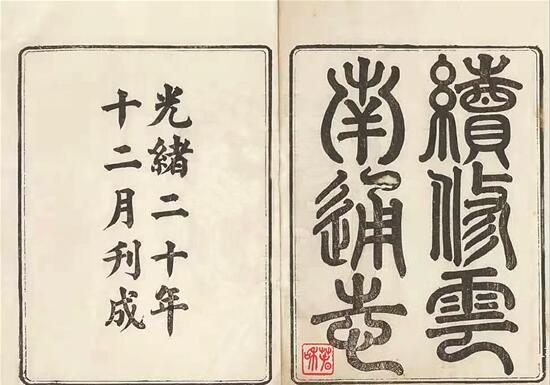 續修雲
南通志
光緒二十年
十二月刊成